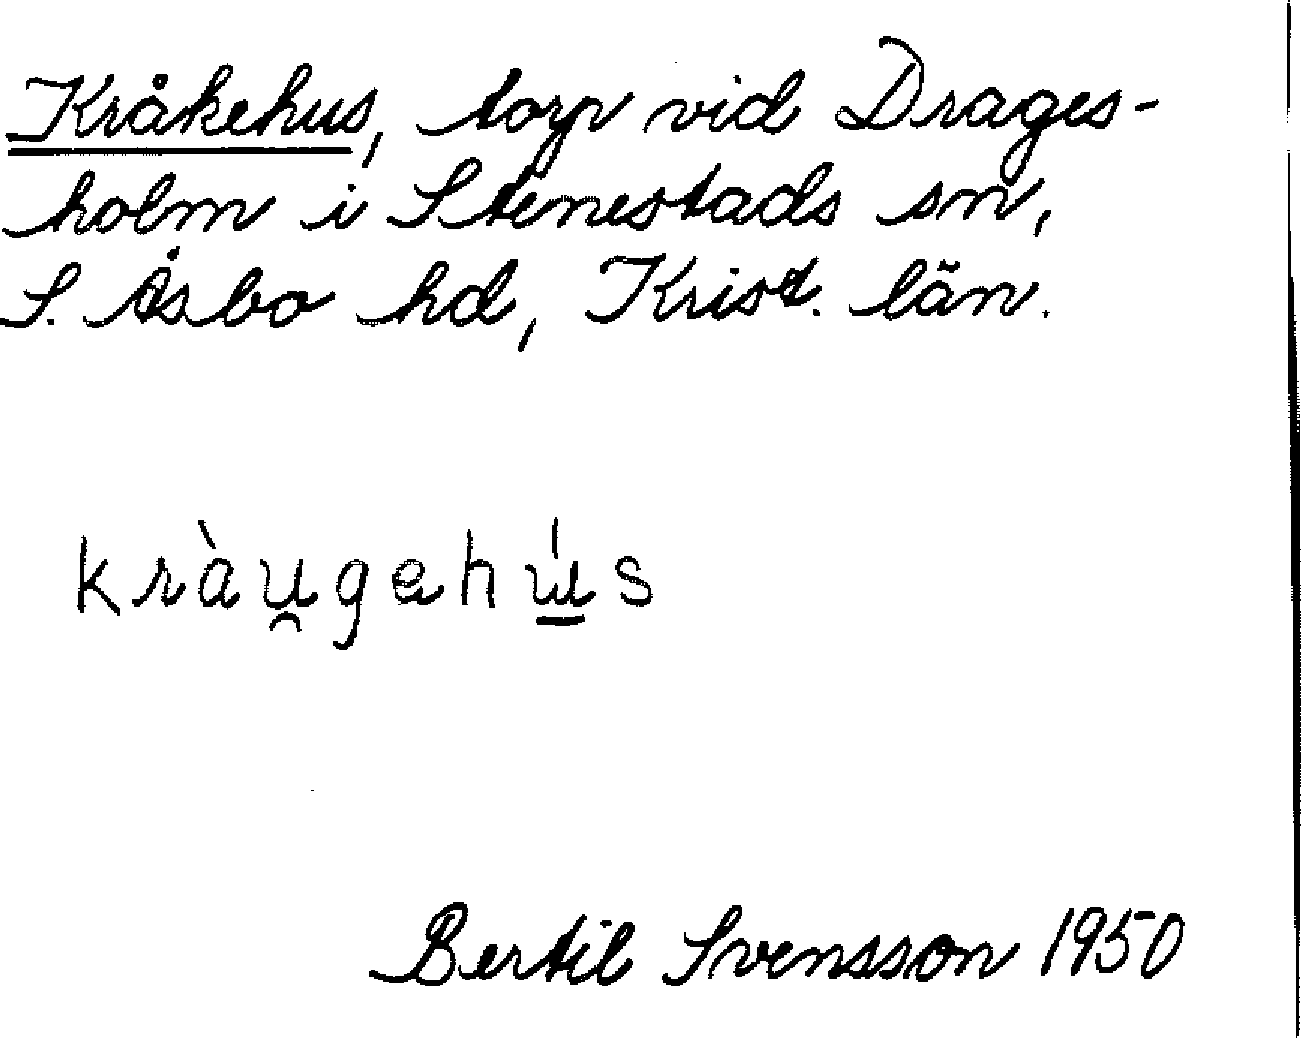 Kråkehus, torp vid Drages-
holm i Stenestads sn,
S. Åsbo hd, Krist. län.
kràu̯gəhú̱s
Bertil Svensson 1950